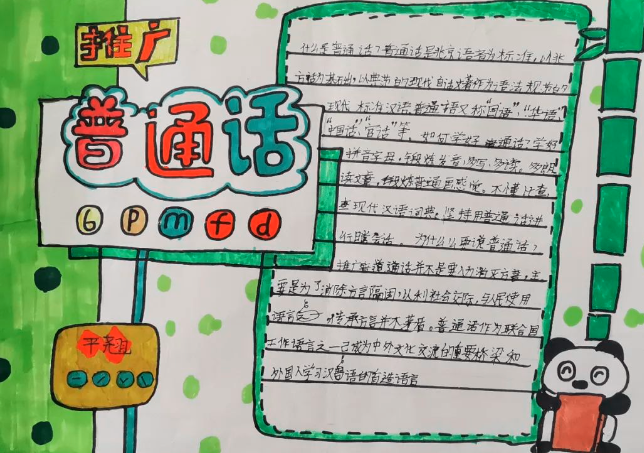 推广
普通话
b p m f d
平羌沮
一 ˊ ˇ ˋ
什么是普通话？普通话是北京语音为标准，以北
方话为基础，以典范的现代白话文著作为语法规范的
现代标准汉语普通语又称“国语”，“华语”
“中国话”，“官话”等 如何学好普通话？学好
拼音字母，锻炼发音，多写、多读、多朗
读文章，锻炼普通画感觉，不懂注意，
查现代汉语词典，坚持用普通话讲
行日常会话。为什么要说普通话？
推广普通话并不是要人为消灭方言，主
要是为了消除方言隔阂，以利社会交际，与人民使用
语言，传承方言并不矛盾。普通话作为联合国
工作语言之一已成为中外文化交流的重要桥梁和
外国人学习汉语的首选语言